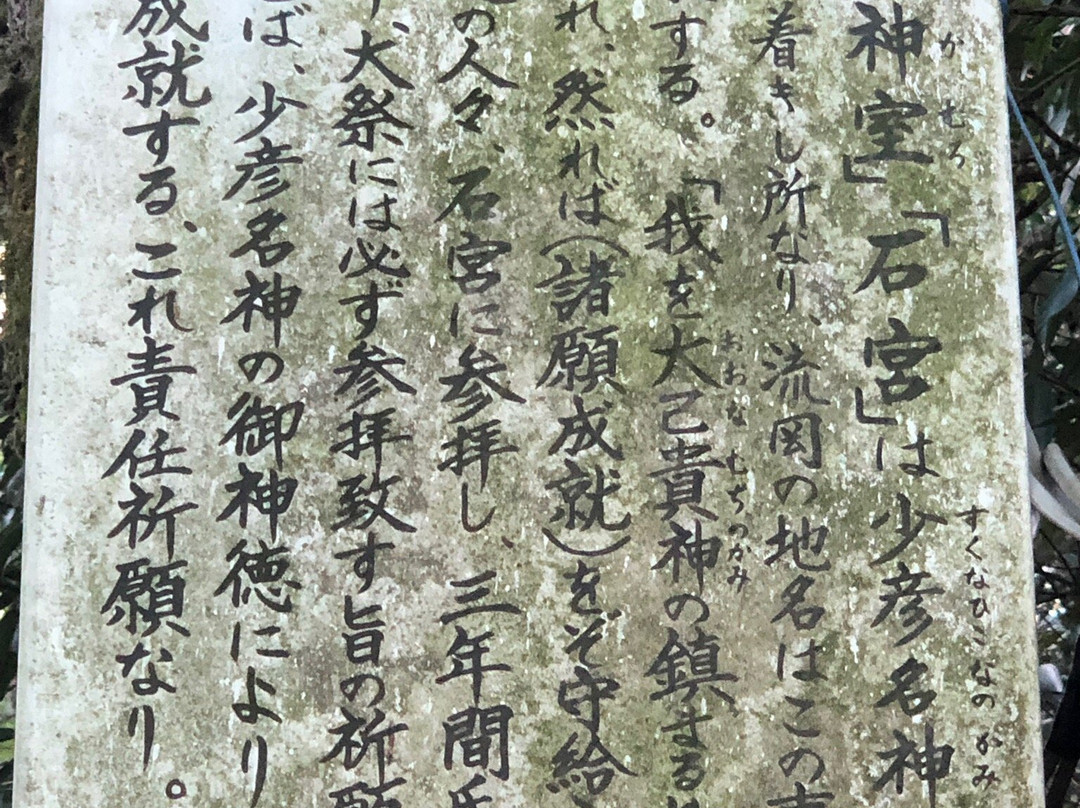 神室」「石宮」は少彦名神
かむろ
すくなひこなのかみ
着きし所なり、流岡の地名はこの
する。「我を大己貴神の鎮まる
おおなむちのかみ
れ、然れば(諸願成就)をぞ守給
の人々、石宮に参拝し、三年間
、大祭には必ず参拝致す旨の祈願
ば、少彦名神の御神徳により
成就する、これ責任祈願なり。